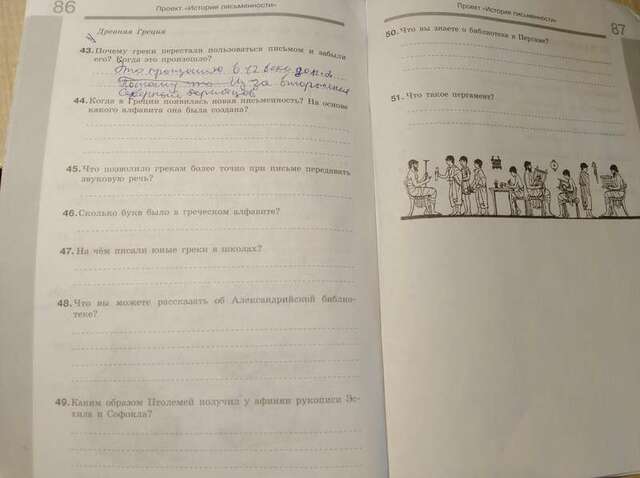 86
Проект «История письменности»
Древняя Греция
43. Почему греки перестали пользоваться письмом и забыли
его? Когда это произошло?
Это произошло в 12 веке до н.э
Потому что Из за вторжения
Северный
44. Когда в Греции появилась новая письменность? На основе
какого алфавита она была создана?
45. Что позволило грекам более точно при письме передавать
звуковую речь?
46. Сколько букв было в греческом алфавите?
47. На чём писали юные греки в школах?
48. Что вы можете рассказать об Александрийской библио-
теке?
49. Каким образом Птолемей получил у афинян рукописи Эс-
хила и Софокла?
Проект «История письменности»
87
50. Что вы знаете о библиотеке в Пергаме?
51. Что такое пергамент?